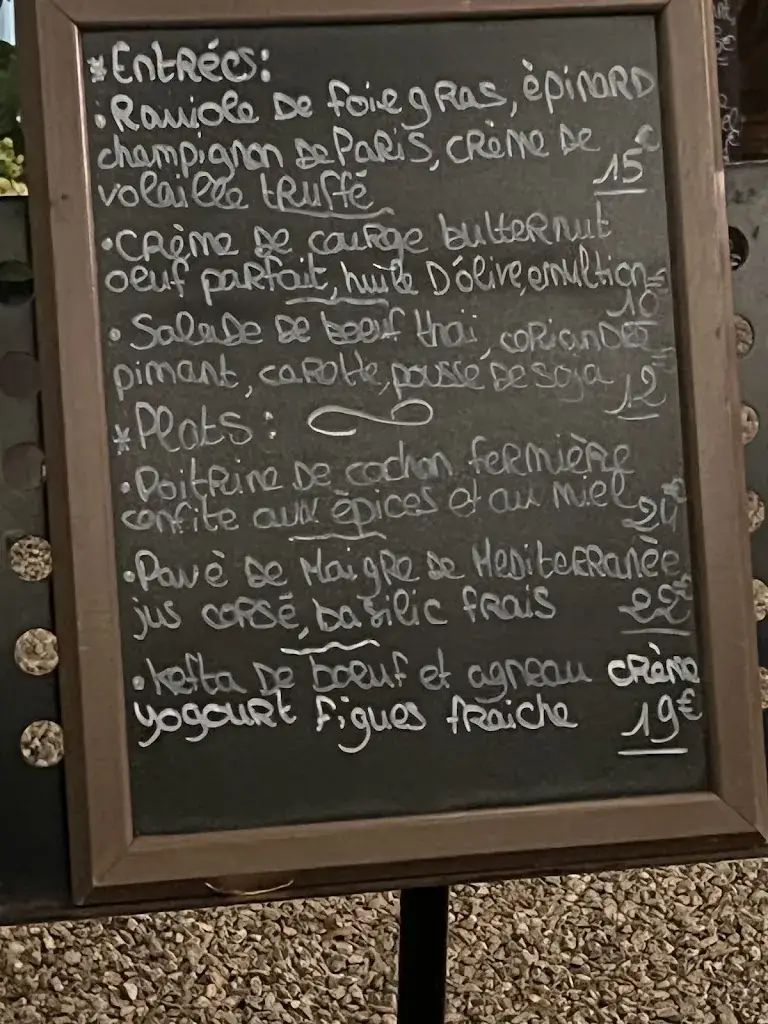 *Entrées:
• Raviole de foie gras, èpinard
champignon de Paris, crème de
volaille truffé 15€
• Crème de courge butternut
oeuf parfait, huile D'ólive, emultion
10€
• Salade de boeuf thaï, coriandre
pimant, carotte, pousse de soja 12€
*Plats:
• Poitrine de cochon fermière
confite aux èpices et au miel 24€
• Pavè de Maigre de Mediterranée
jus corsé, basilic frais 22€
• Kefta de boeuf et agneau crème
yogourt figues fraiche 19€